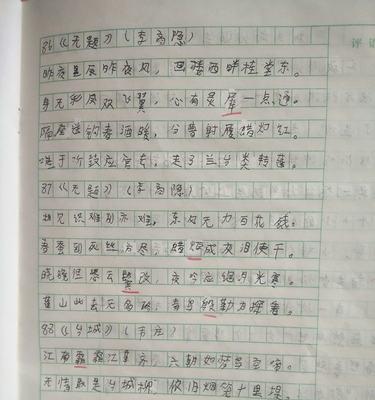 86《无题》(李商隐)
昨夜星辰昨夜风，画楼西畔桂堂东。
身无彩凤双飞翼，心有灵犀一点通。
隔座送钩春酒暖，分曹射覆蜡灯红。
嗟予听鼓应官去，走马兰台类转蓬。
87《无题》(李商隐)
相见时难别亦难，东风无力百花残。
春蚕到死丝方尽，蜡炬成灰泪使干。
晓镜但愁云鬓改，夜吟应觉月光寒。
蓬山此去无多路，青鸟殷勤为探看。
88《台城》(韦庄)
江雨霏霏江草齐，六朝如梦鸟空啼。
无情最是台城柳，依旧烟笼十里堤。